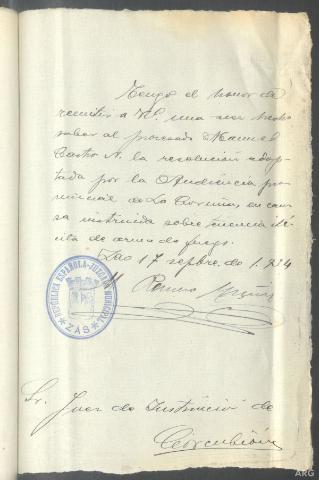 Tengo el honor de
remitir a Vd. una vez hecho
saber al procesado Manuel
Castro N. la resolución adop-
tada por la Audiencia pro-
vincial de La Coruña en cau-
sa instruida sobre tenencia ilí-
cita de arma de fuego.
Zas 17 sepbre. de 1.934
REPÚBLICA ESPAÑOLA-JUZGADO MUNICIPAL
*ZAS*
Romero
Sr. Juez de Instrucción de
Corcubión
ARG